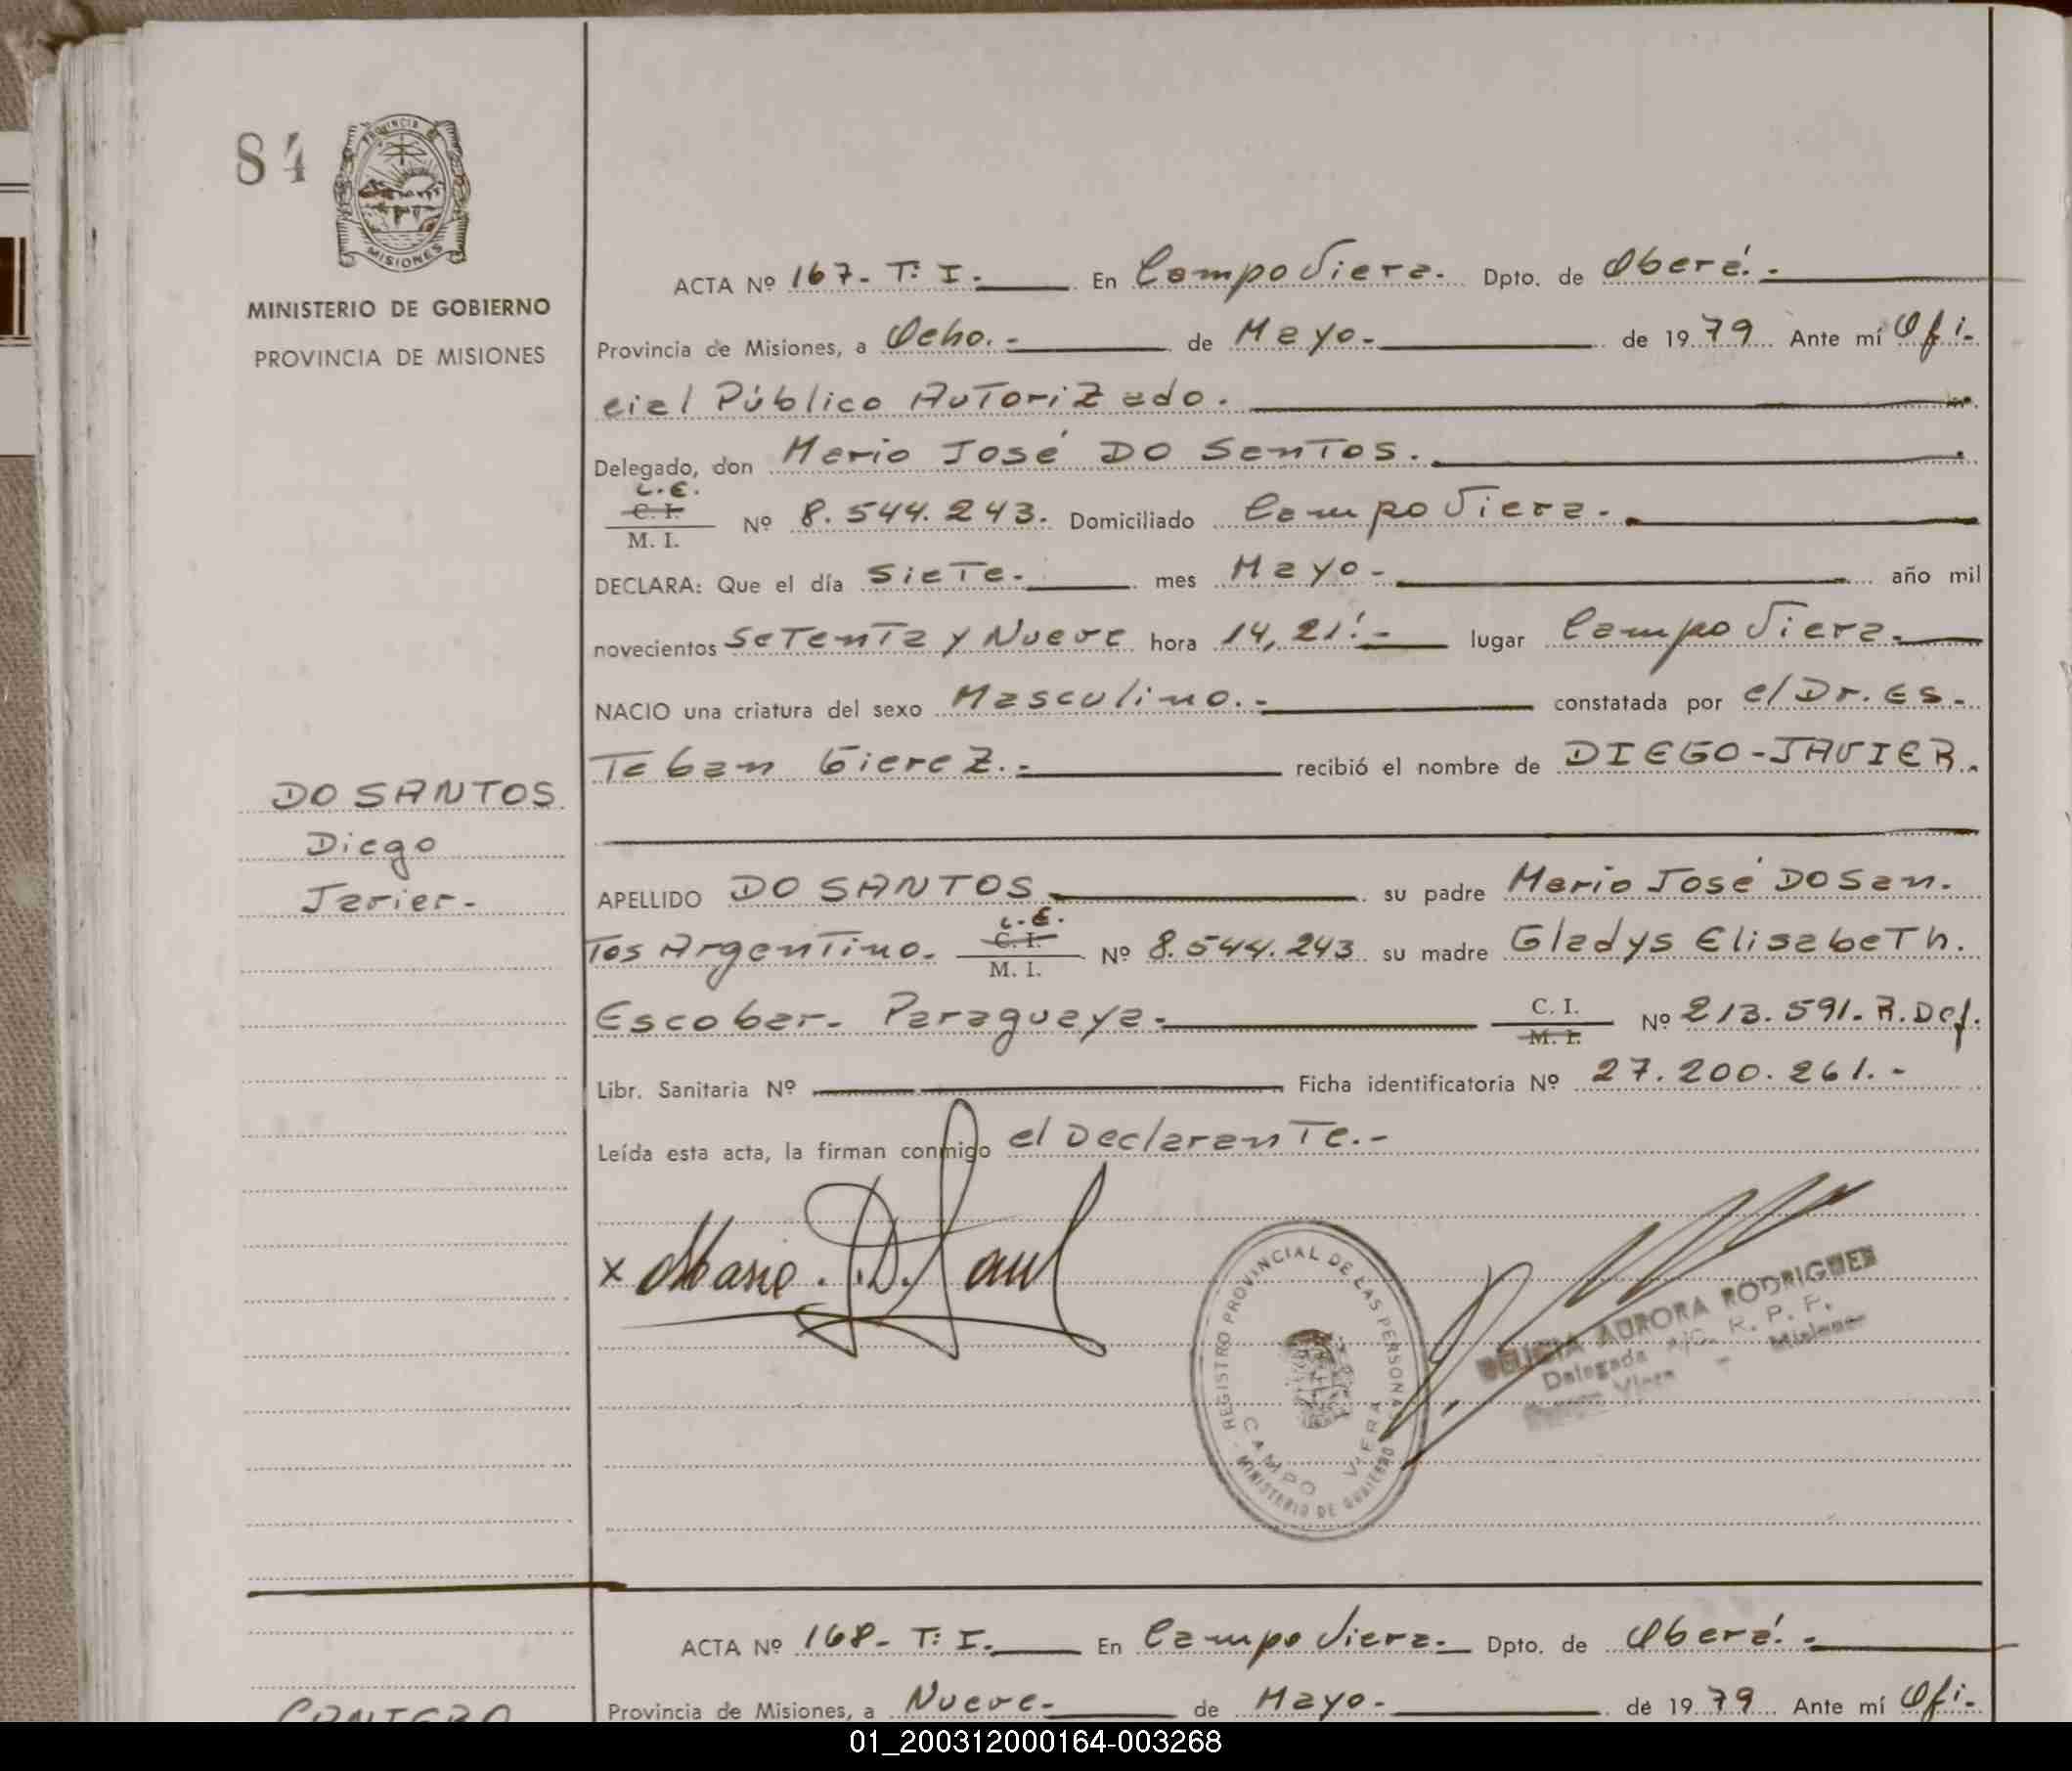 84
PROVINCIA DE
MISIONES
MINISTERIO DE GOBIERNO
PROVINCIA DE MISIONES
ACTA Nº 167- T: I.- En Campo Viera. Dpto. de Oberá.-
Provincia de Misiones, a Ocho.- de Mayo.- de 1979 Ante mí Ofi-
cial Público Autorizado.
Delegado, don Mario José DO Santos.
L.E.
C. I.
M. I. Nº 8.544.243. Domiciliado Campo Viera.-
DECLARA: Que el día Siete.- mes Mayo- año mil
novecientos Setenta y Nueve hora 14,21'.- lugar Campo Viera.
NACIO una criatura del sexo Masculino.- constatada por el Dr. Es-
teban Gierez.- recibió el nombre de DIEGO-JAVIER.
DO SANTOS
Diego
Javier-
APELLIDO DO SANTOS su padre Mario José DO San-
tos Argentino. L.E. C. I. M. I. Nº 8.544.243 su madre Gladys Elisabeth.
Escobar- Paraguaya- C. I. M. I. Nº 213.591- R.Def.
Libr. Sanitaria Nº Ficha identificatoria Nº 27.200.261.-
Leída esta acta, la firman conmigo el Declarante.-
x Mario. J.D.
REGISTRO PROVINCIAL DE LAS PERSONAS
CAMPO VIERA
MINISTERIO DE GOBIERNO
DELICIA AURORA RODRIGUEZ
Delegada A/C. R. P. P.
Campo Viera - Misiones
ACTA Nº 168- T: I.- En Campo Viera.- Dpto. de Oberá.-
Provincia de Misiones, a Nueve- de Mayo- de 1979 Ante mí Ofi-
01_200312000164-003268